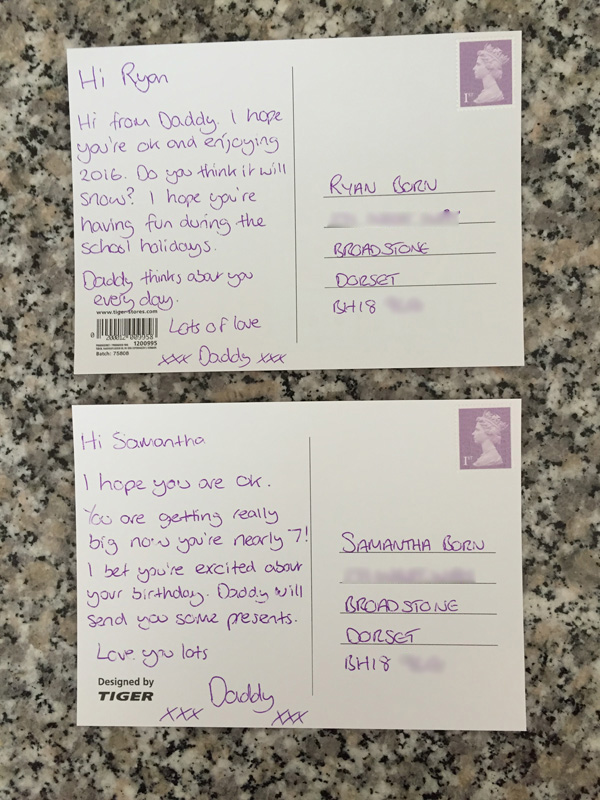 Hi Ryan
Hi from Daddy. I hope
you're ok and enjoying
2016. Do you think it will
snow? I hope you're
having fun during the
school holidays.
Daddy thinks about you
every day.
www.tiger-stores.com
1200995
Batch: 75808
Lots of love
xxx Daddy xxx
1st
RYAN BORN
BROADSTONE
DORSET
BH18
Hi Samantha
I hope you are ok.
You are getting really
big now you're nearly 7!
I bet you're excited about
your birthday. Daddy will
send you some presents.
Love you lots
Designed by
TIGER
Daddy
xxx xxx
1st
SAMANTHA BORN
BROADSTONE
DORSET
BH18